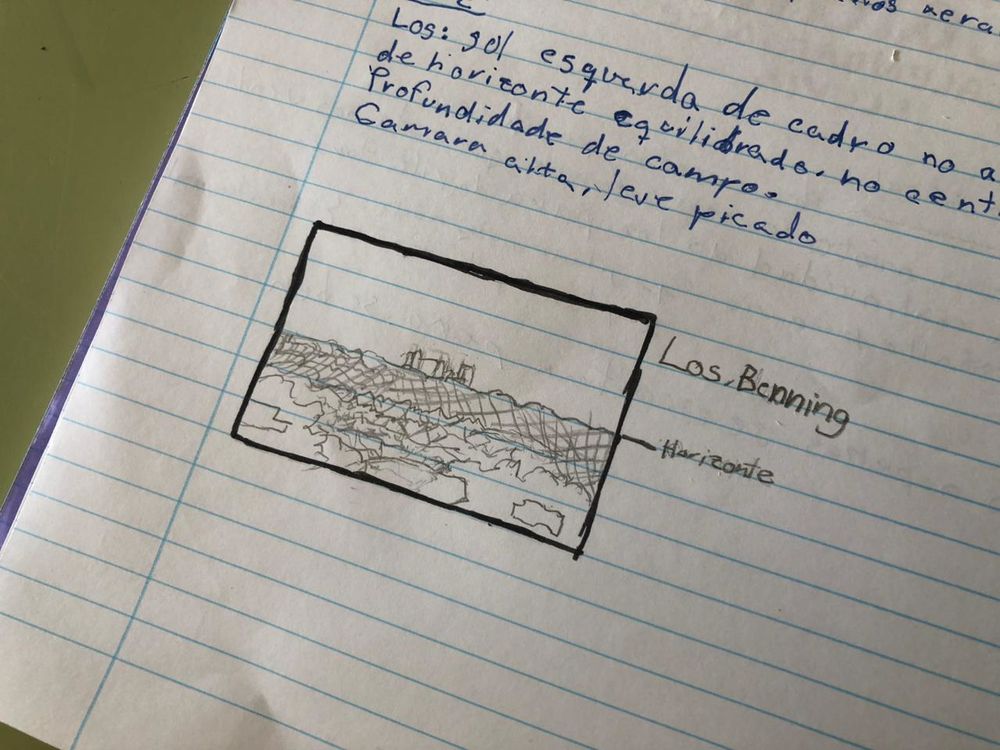 Los: sol esquerda de cadro no a
de horizonte equilibrado. no cent
Profundidade de campo.
Camara alta, leve picado
Los, Benning
Horizonte